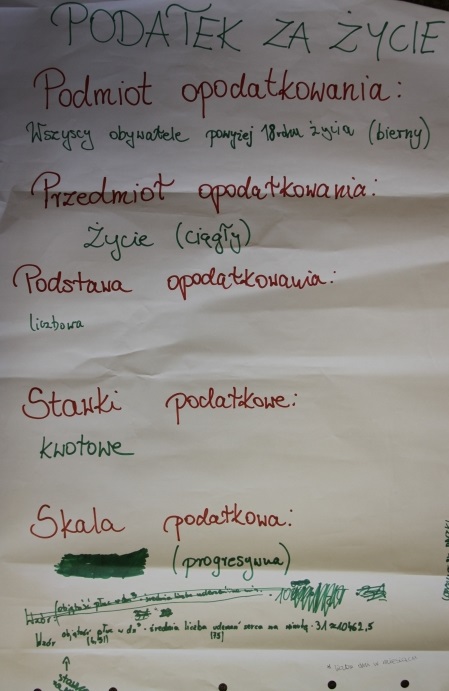 PODATEK ZA ŻYCIE
Podmiot opodatkowania:
Wszyscy obywatele powyżej 18 roku życia (bierny)
Przedmiot opodatkowania:
Życie (ciągły)
Podstawa opodatkowania:
liczbowa
Stawki podatkowe:
kwotowe
Skala podatkowa:
(progresywna)
Wzór objętość płuc w dm³ · średnia liczba uderzeń serca na minutę · 31 ≈ 10462,5
[4,5l] [75]